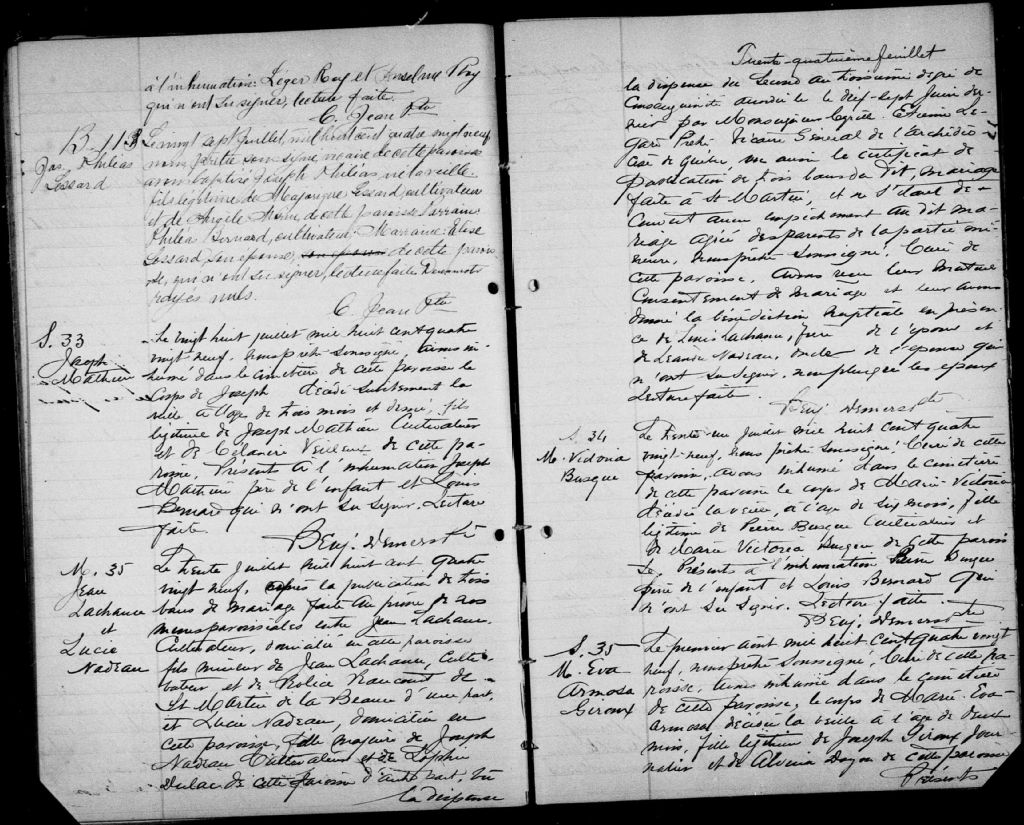 à l'inhumation: Leger Roy et Anselme Roy
qui n'ont su signer, lecture faite.
C. Jean Ptre
B. 113
Jos. Philéas
Lessard
Le vingt sept Juillet, mil huit cent quatre vingt neuf
nous prêtre soussigné vicaire de cette paroisse
avons baptisé Joseph Philéas né la veille
fils légitime de Majorique Lessard, cultivateur
et de Angèle de cette paroisse Parrain:
Philéa Bernard, cultivateur. Marraine: Elise
Lessard son épouse, de cette parois
se, qui n'ont su signer, lecture faite
rayés nuls.
C. Jean Ptre
S. 33
Joseph
Mathieu
Le vingt huit juillet mil huit cent quatre
vingt neuf, nous prêtre soussigné, avons in-
humé dans le cimetière de cette paroisse le
corps de Joseph décédé la
veille à l'age de trois mois et demi, fils
légitime de Joseph Mathieu Cultivateur
et de Célanire Veilleux de cette pa-
roisse, Présents à l'inhumation Joseph
Mathieu père de l'enfant et Louis
Bernard qui n'ont su signer. Lecture
faite.
Benj. Demers Ptre
M. 35
Jean
Lachance
et
Lucie
Nadeau
Le trente juillet mil huit cent quatre
vingt neuf, après la publication de trois
bans de mariage faite au prône de nos
messes paroissiales entre Jean Lachance
Cultivateur, domicilié en cette paroisse
fils mineur de Jean Lachance, Culti-
vateur et de de
St Martin de la Beauce d'une part,
et Lucie Nadeau, domiciliée en
cette paroisse, fille majeure de Joseph
Nadeau Cultivateur et de Sophie
Dulac de cette paroisse d'autre part, Vu
la dispense
Trente-quatrième feuillet
la dispense du second au troisième degré de
Consanguinité accordée le dix-sept Juin der-
nier par Monseigneur Cyrille Etienne Le-
garé Prêt. Vicaire Général de l'archidio-
cèse de Québec, vu aussi le certificat de
publication de trois bans du dit mariage
faite à St Martin, et ne s'étant dé-
couvert aucun empêchement au dit ma-
riage des parents de la partie mi-
neure, nous prêtre soussigné, Curé de
cette paroisse, avons reçu leur mutuel
Consentement de mariage et leur avons
donné la bénédiction nuptiale en présen-
ce de Louis Lachance, frère de l'époux et
de Léandre Nadeau, oncle de l'épouse qui
n'ont su signer, non plus que les époux
Lecture faite.
Benj. Demers Ptre
S. 34
M. Victoria
Busque
Le trente-un juillet mil huit cent quatre
vingt-neuf, nous prêtre soussigné, Curé de cette
paroisse, avons inhumé dans le cimetière
de cette paroisse le corps de Marie-Victoria
décédée la veille, à l'age de six mois, fille
légitime de Pierre Busque Cultivateur et
de Marie Victoria Busque de cette parois
se. Présents à l'inhumation Pierre Busque
père de l'enfant et Louis Bernard qui
n'ont su signer. Lecture faite.
Benj. Demers Ptre
S. 35
M. Eva
Armosa
Giroux
Le premier août mil huit cent quatre vingt
neuf, nous prêtre soussigné, Curé de cette pa-
roisse, avons inhumé dans le cimetière
de cette paroisse, le corps de Marie-Eva-
Armosa, décédée la veille à l'age de deux
mois, fille légitime de Joseph Giroux Jour-
nalier et de Alvina Doyon de cette paroisse
Présents